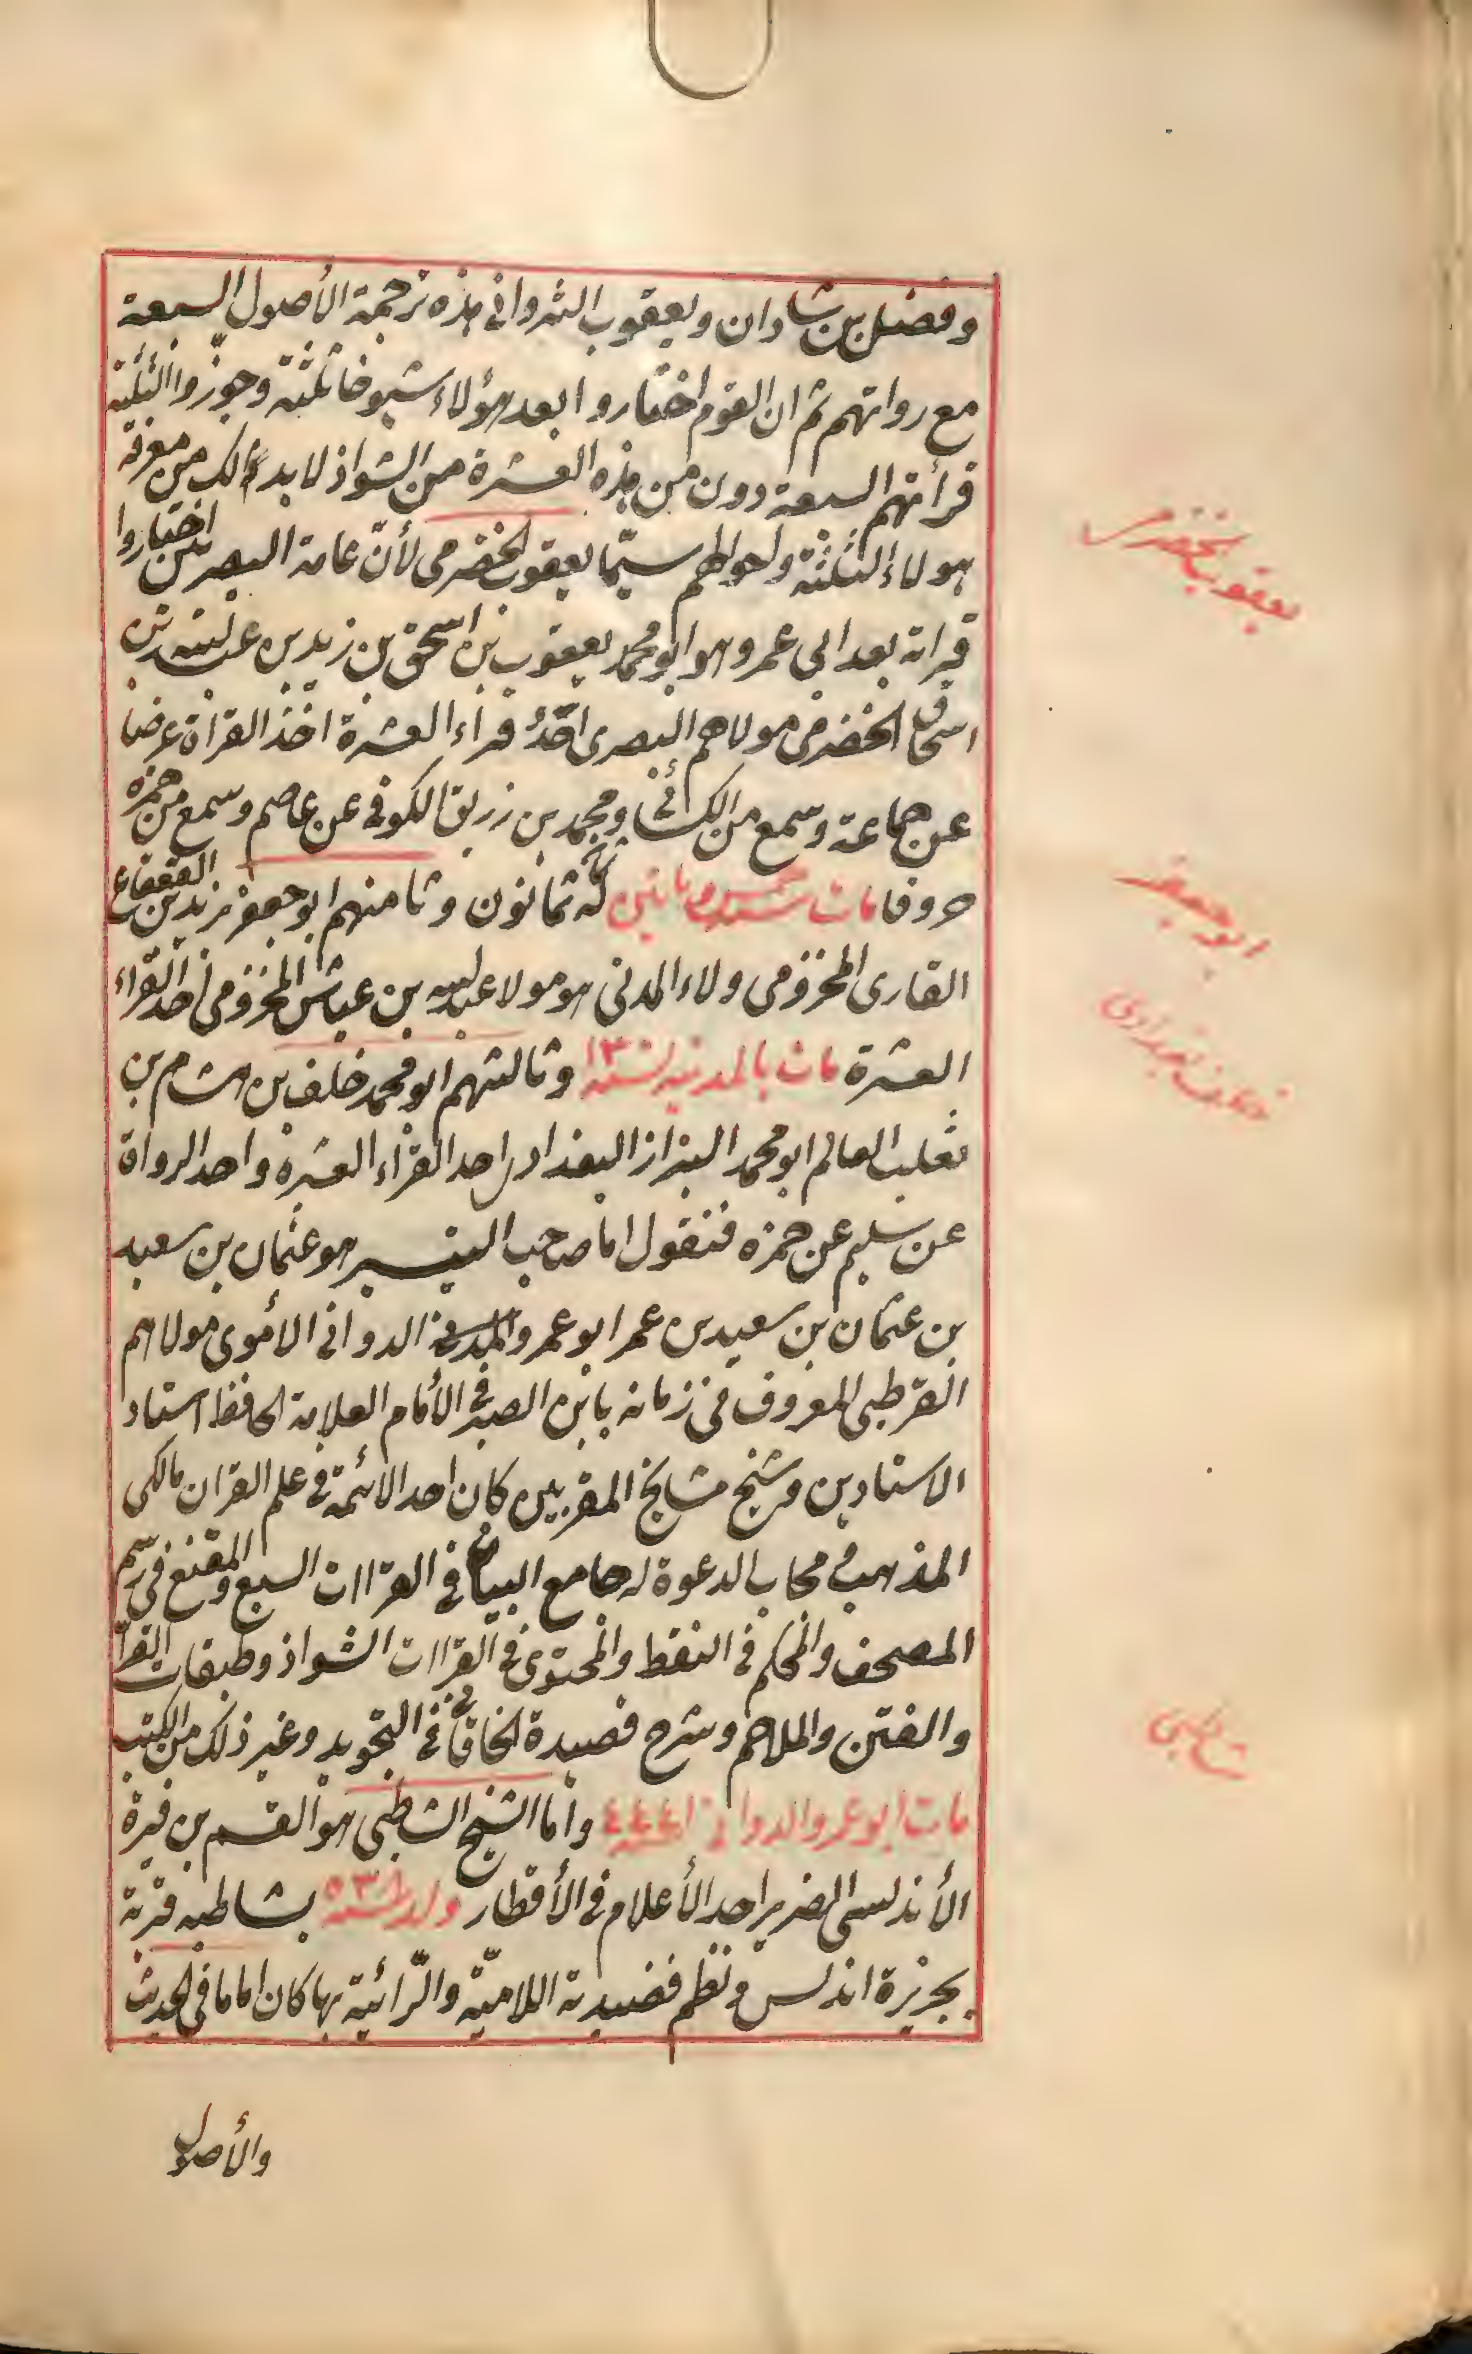 وفضل بن شادان ويعقوب التروانى هذه ترجمة الأصول السبعة
مع رواتهم ثم ان القوم اختاروا بعد هؤلاء شيوخا ثلثة وجوّزوا الثلثة
قرأتهم السبعة دون من هذه العشرة من الشواذ لابد لك من معرفة
هولاء الثلثة واحوالهم سيّما يعقوب الحضرمى لأنّ عامة البصريين اختاروا
قراته بعد ابى عمرو هو ابو محمد يعقوب بن اسحق بن زيد بن عبدالله بن
اسحاق الحضرمى مولاهم البصرى احدُ قراء العشرة اخذ القراة عرضا
عن جماعة وسمع من الكسائى ومحمد بن زريق الكوفى عن عاصم وسمع من حمزة
حروفا مات سنة خمس وماتين له ثمانون وثامنهم ابو جعفر يزيد بن القعقاع
القارى المخزومى ولاء المدنى هو مولا عبدالله بن عياش المخزومى احد القراء
العشرة مات بالمدينه سنة ١٣٠ وثالثهم ابو محمد خلف بن هشام بن
ثعلب العالم ابو محمد البزاز البغدادى احد القراء العشره واحد الرواة
عن سليم عن حمزه فنقول اما صاحب التيسير هو عثمان بن سعيد
بن عثمان بن سعيد بن عمر ابو عمرو الدوانى الأموى مولاهم
القرطبى المعروف فى زمانه بابن الصيرفى الأمام العلامة الحافظ استاد
الاستادين وشيخ مشايخ المقريين كان احد الائمة فى علم القران مالكى
المذهب مجاب الدعوة له جامع البيان فى القراات السبع والمقنع فى رسم
المصحف والمحكم فى النقط والمحتوى فى القراات الشواذ وطبقات القرّا
والفتن والملاحم وشرح قصيدة الخاقانى فى التجويد وغير ذلك من الكتب
مات ابو عمرو الدوانى سنة ٤٤٤ وأما الشيخ الشاطبى هو القسم بن فيرة
الأندلسى الضرير احد الأعلام فى الأقطار ولد سنة ٥٣٨ بشاطبه قرية
بجزيرة اندلس ونظم قصيدته اللاميّة والرّائية بها كان اماما فى الحديث
والأصول
يعقوب الحضرمى
ابو جعفر
خلف بغدادى
شاطبى